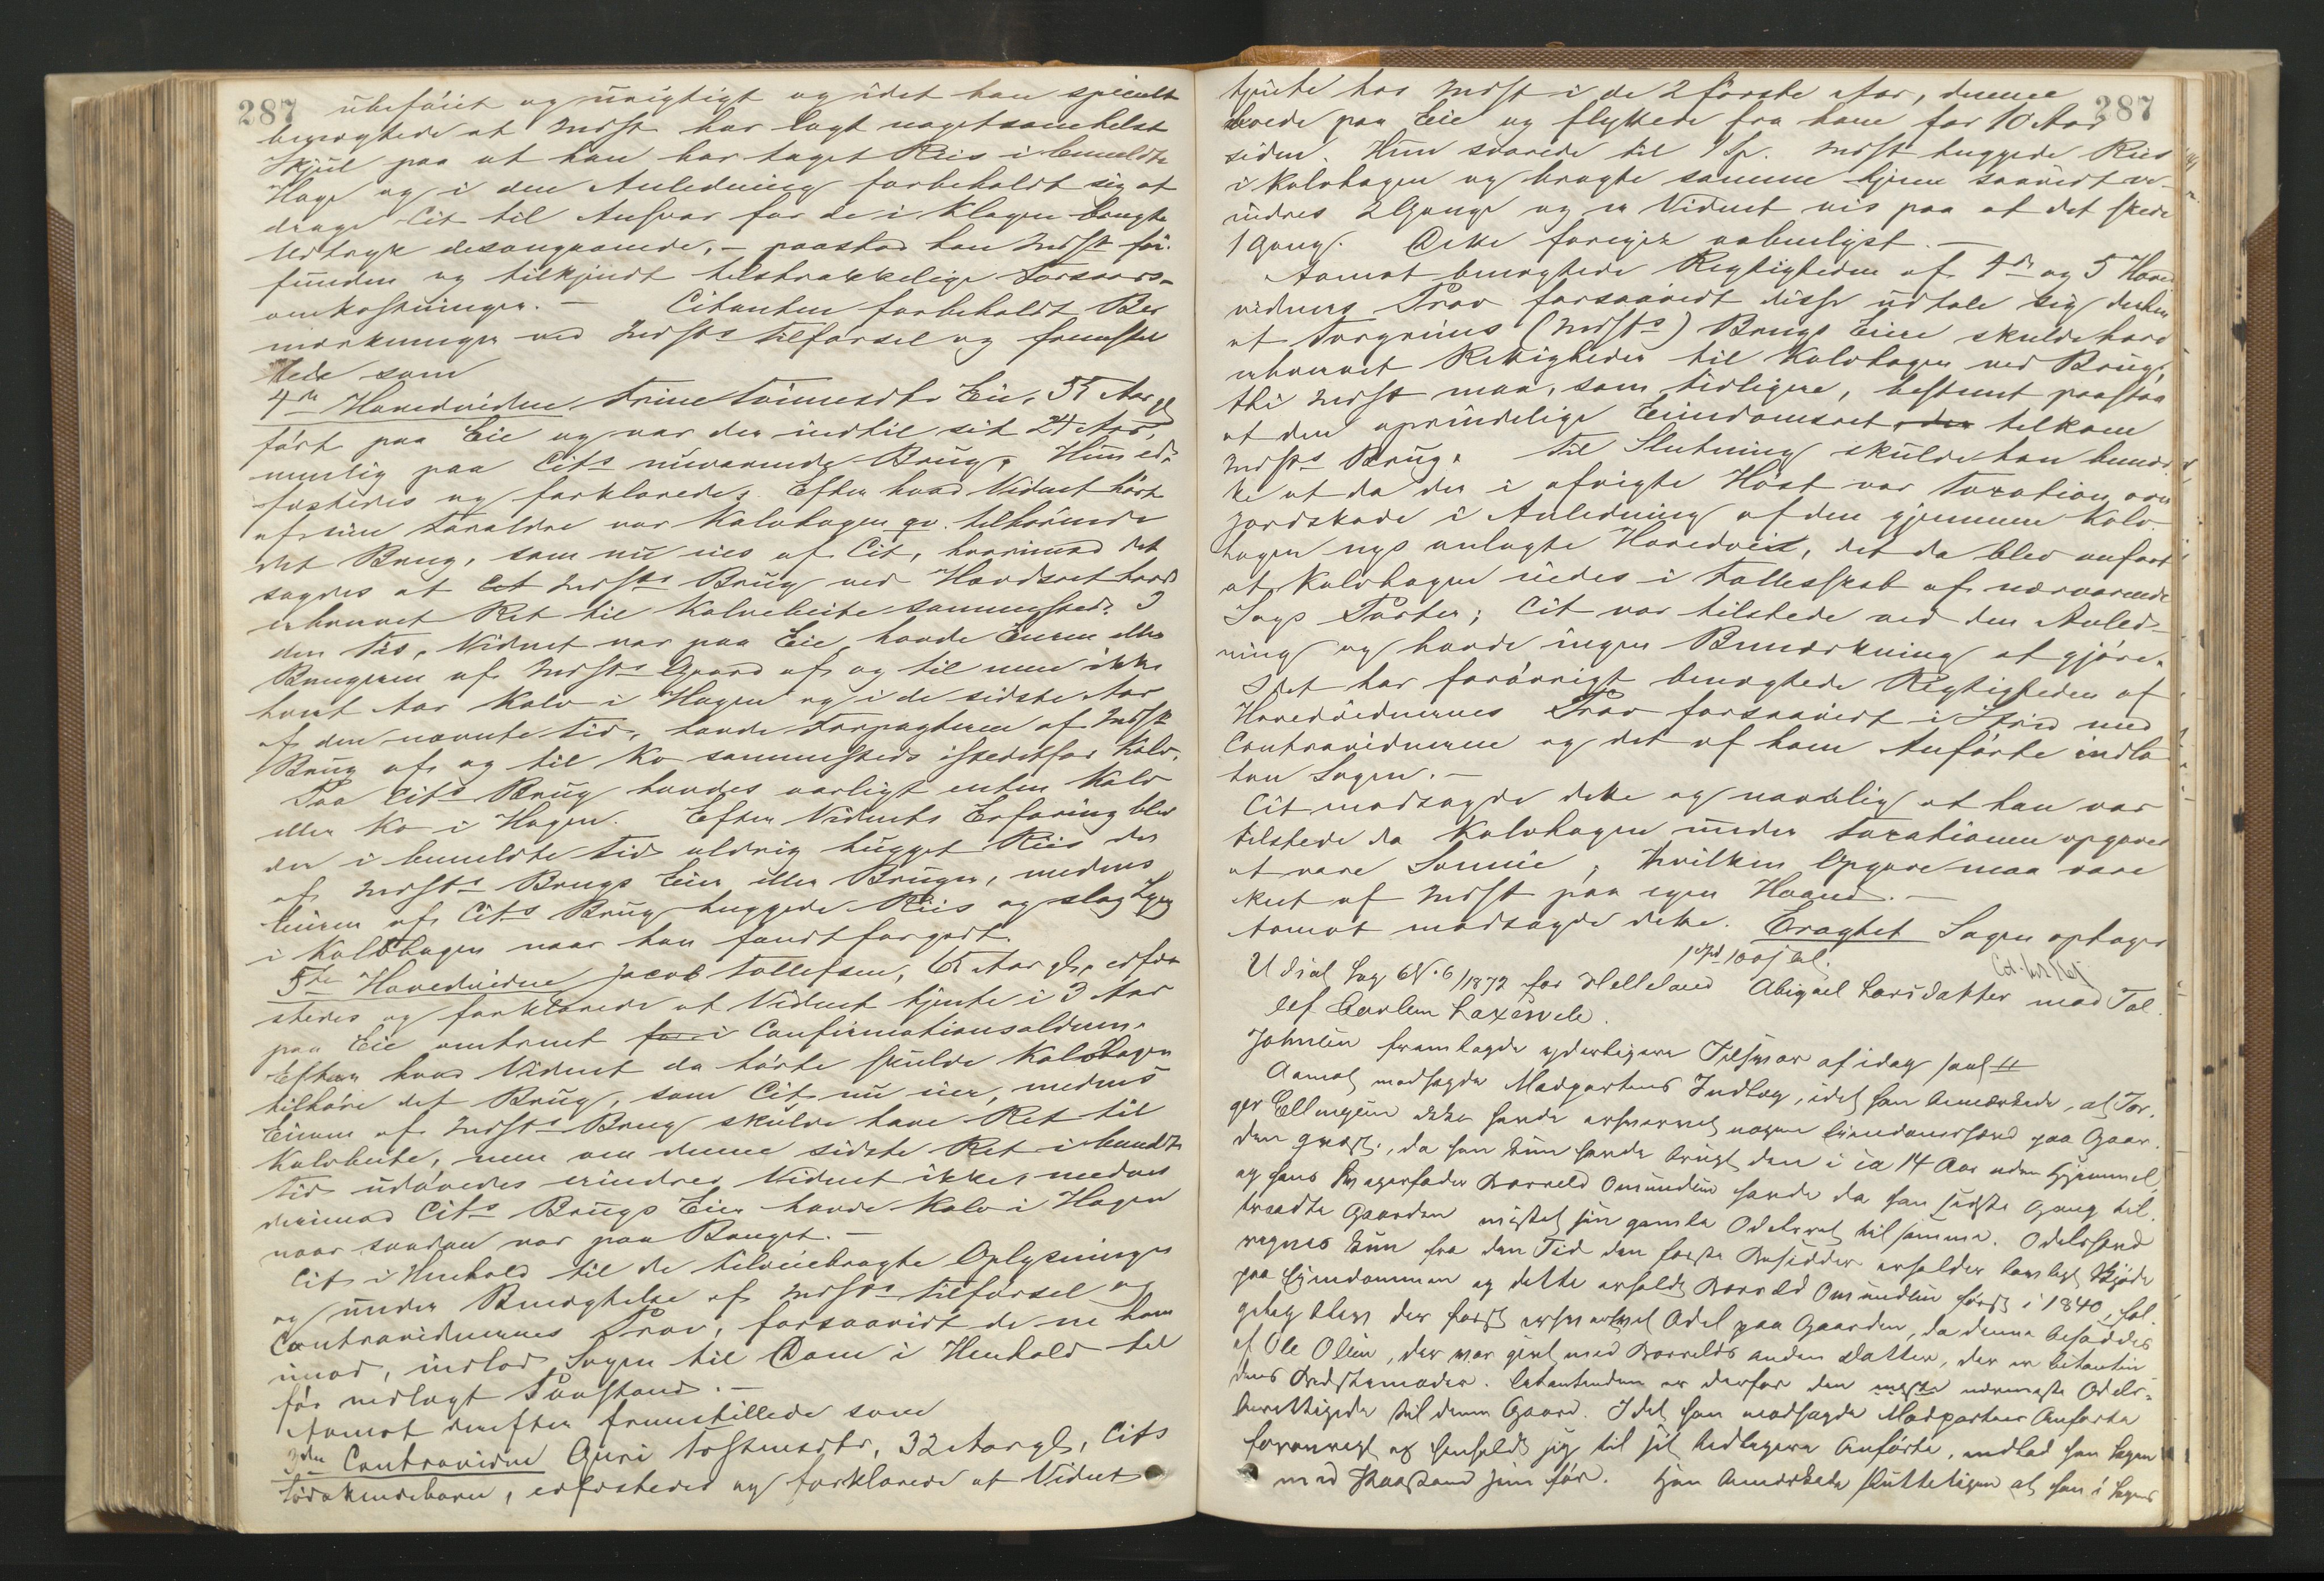 287
ubeføiet og urigtigt og idet han specielt
benegtede at Indst har lagt nogetsomhelst
Skjul paa at han har taget Riis i bemeldte
Hage og i den Anledning forbeholdt sig at
drage Cit til Ansvar for de i Klagen brugte
Udtryk desangaaende, – paastod han Indst fri-
funden og tilkjendt tilstrækkelige Forsvars-
omkostninger. – Citanten forbeholdt Be-
mærkninger ved Indsts Tilførsel og fremstil-
lede som
4de Hovedvidne Trine Tønnesdtr Eie, 55 Aar gl
født paa Eie og var der indtil sit 24 Aar,
nemlig paa Cits nuværende Brug. Hun ed-
fæstedes og forklarede: Efter hvad Vidnet hørt
af sine Forældre var Kalvhagen qv. tilhørende
det Brug, som nu eies af Cit, hvorimod det
sagdes at Indsts Brug ved Hævdsret havde
erhvervet Ret til Kalvebeite sammesteds. I
den Tid, Vidnet var paa Eie, havde Eieren eller
Brugeren af Indsts Gaard af og til men ikke
hvert Aar Kalv i Hagen og i de sidste Aar
af den nævnte Tid, havde Forpagteren af Indsts
Brug af og til Ko sammesteds istedetfor Kalv.
Paa Cits Brug havdes aarligt enten Kalv
eller Ko i Hagen. Efter Vidnets Erfaring blev
der i bemeldte Tid aldrig hugget Riis der
af Indsts Brugs Eier eller Bruger, medens
Eieren af Cits Brug huggede Riis og slog Lyng
i Kalvhagen naar han fandt for godt.
5te Hovedvidne Jacob Tollefsen, 65 Aar gl, edfæ-
stedes og forklarede at Vidnet tjente i 3 Aar
paa Eie omtrent i Confirmationsalderen.
Efter hvad Vidnet da hørte skulde Kalvhagen
tilhøre det Brug, som Cit nu eier, medens
Eieren af Indsts Brug skulde have Ret til
Kalvbeite, men om denne sidste Ret i bemeldte
Tid udøvedes erindrer Vidnet ikke, medens
derimod Cits Brugs Eier havde Kalv i Hagen
naar saadan var paa Bruget. –
Cit i Henhold til de tilveiebragte Oplysninger
og under Benegtelse af Indsts Tilførsel og
Contravidnernes Prov, forsaavidt de ere ham
imod, indlod Sagen til Dom i Henhold til
før nedlagt Paastand. –
Aamot derefter fremstillede som
3die Contravidne Guri Tostensdtr, 32 Aar gl, Cits
Sødskendebarn, edfæstedes og forklarede at Vidnet
287
tjente hos Indst i de 2 første Aar, denne
boede paa Eie og flyttede fra ham for 10 Aar
siden. Hun svarede til 1 Sp. Indst huggede Riis
i Kalvhagen og bragte samme hjem saavidt er-
indres 2 Gange og er Vidnet vis paa at det skede
1 Gang. Dette foregik aabenlyst. –
Aamot benegtede Rigtigheden af 4de og 5 Hoved-
vidners Prov forsaavidt disse udtale sig derhen
at Torgrims (Indsts) Brugs Eiere skulde have
erhvervet Rettigheder til Kalvhagen ved Brug,
thi Indst maa, som tidligere, bestemt paastaa
at den oprindelige Eiendomsret tilkom
Indsts Brug. Til Slutning skulde han bemær-
ke at da der i afvigte Høst var Taxation over
Jordskade i Anledning af den gjennem Kalv-
hagen nys anlagte Hovedvei, det da blev anført
at Kalvhagen eiedes i Fællesskab af nærværende
Sags Parter; Cit var tilstede ved den Anled-
ning og havde ingen Bemærkning at gjøre.
Idet han forøvrigt benegtede Rigtigheden af
Hovedvidnernes Prov forsaavidt i Strid med
Contravidnerne og det af ham Anførte indlod
han Sagen. –
Cit modsagde dette og navnlig at han var
tilstede da Kalvhagen under Taxationen opgaves
at være Sameie, hvilken Opgave maa være
skeet af Indst paa egen Haand. –
Aamot modsagde dette. Eragtet Sagen optaget
1 Spd 100 ß bet.
Udsat Sag No 6/1872 for Helleland Abigael Larsdatter mod Tol-
lef Carlsen Laxesvele.
Johnsen fremlagde yderligere Tilsvar af idag saal #
Aamot modsagde Modpartens Indlæg, idet han bemærkede, at Tor-
ger Ellingsen ikke havde erhvervet nogen Eiendomshævd paa Gaar-
den qvæst., da han kun havde brugt den i ca 14 Aar uden Hjemmel,
og hans Svigerfader Borreld Omundsen havde da han sidste Gang til-
traadte Gaarden mistet sin gamle Odelsret til samme. Odelshævd
regnes kun fra den Tid den første Besidder erholder lovligt Skjøde
paa Eiendommen og dette erholdt Borreld Omundsen først i 1840, føl-
gelig blev der først erhvervet Odel paa Gaarden, da denne besaddes
af Ole Olsen, der var givt med Borrelds anden Datter, der er Citantin-
dens Bedstemoder. Citantinden er derfor den nærmeste Odels-
berettigede til denne Gaard. Idet han modsagde Modpartens Anførte
forøvrigt og henholdt sig til sit tidligere Anførte, indlod han Sagen
med Paastand som før. Han bemærkede sluttelig at han i Sagens